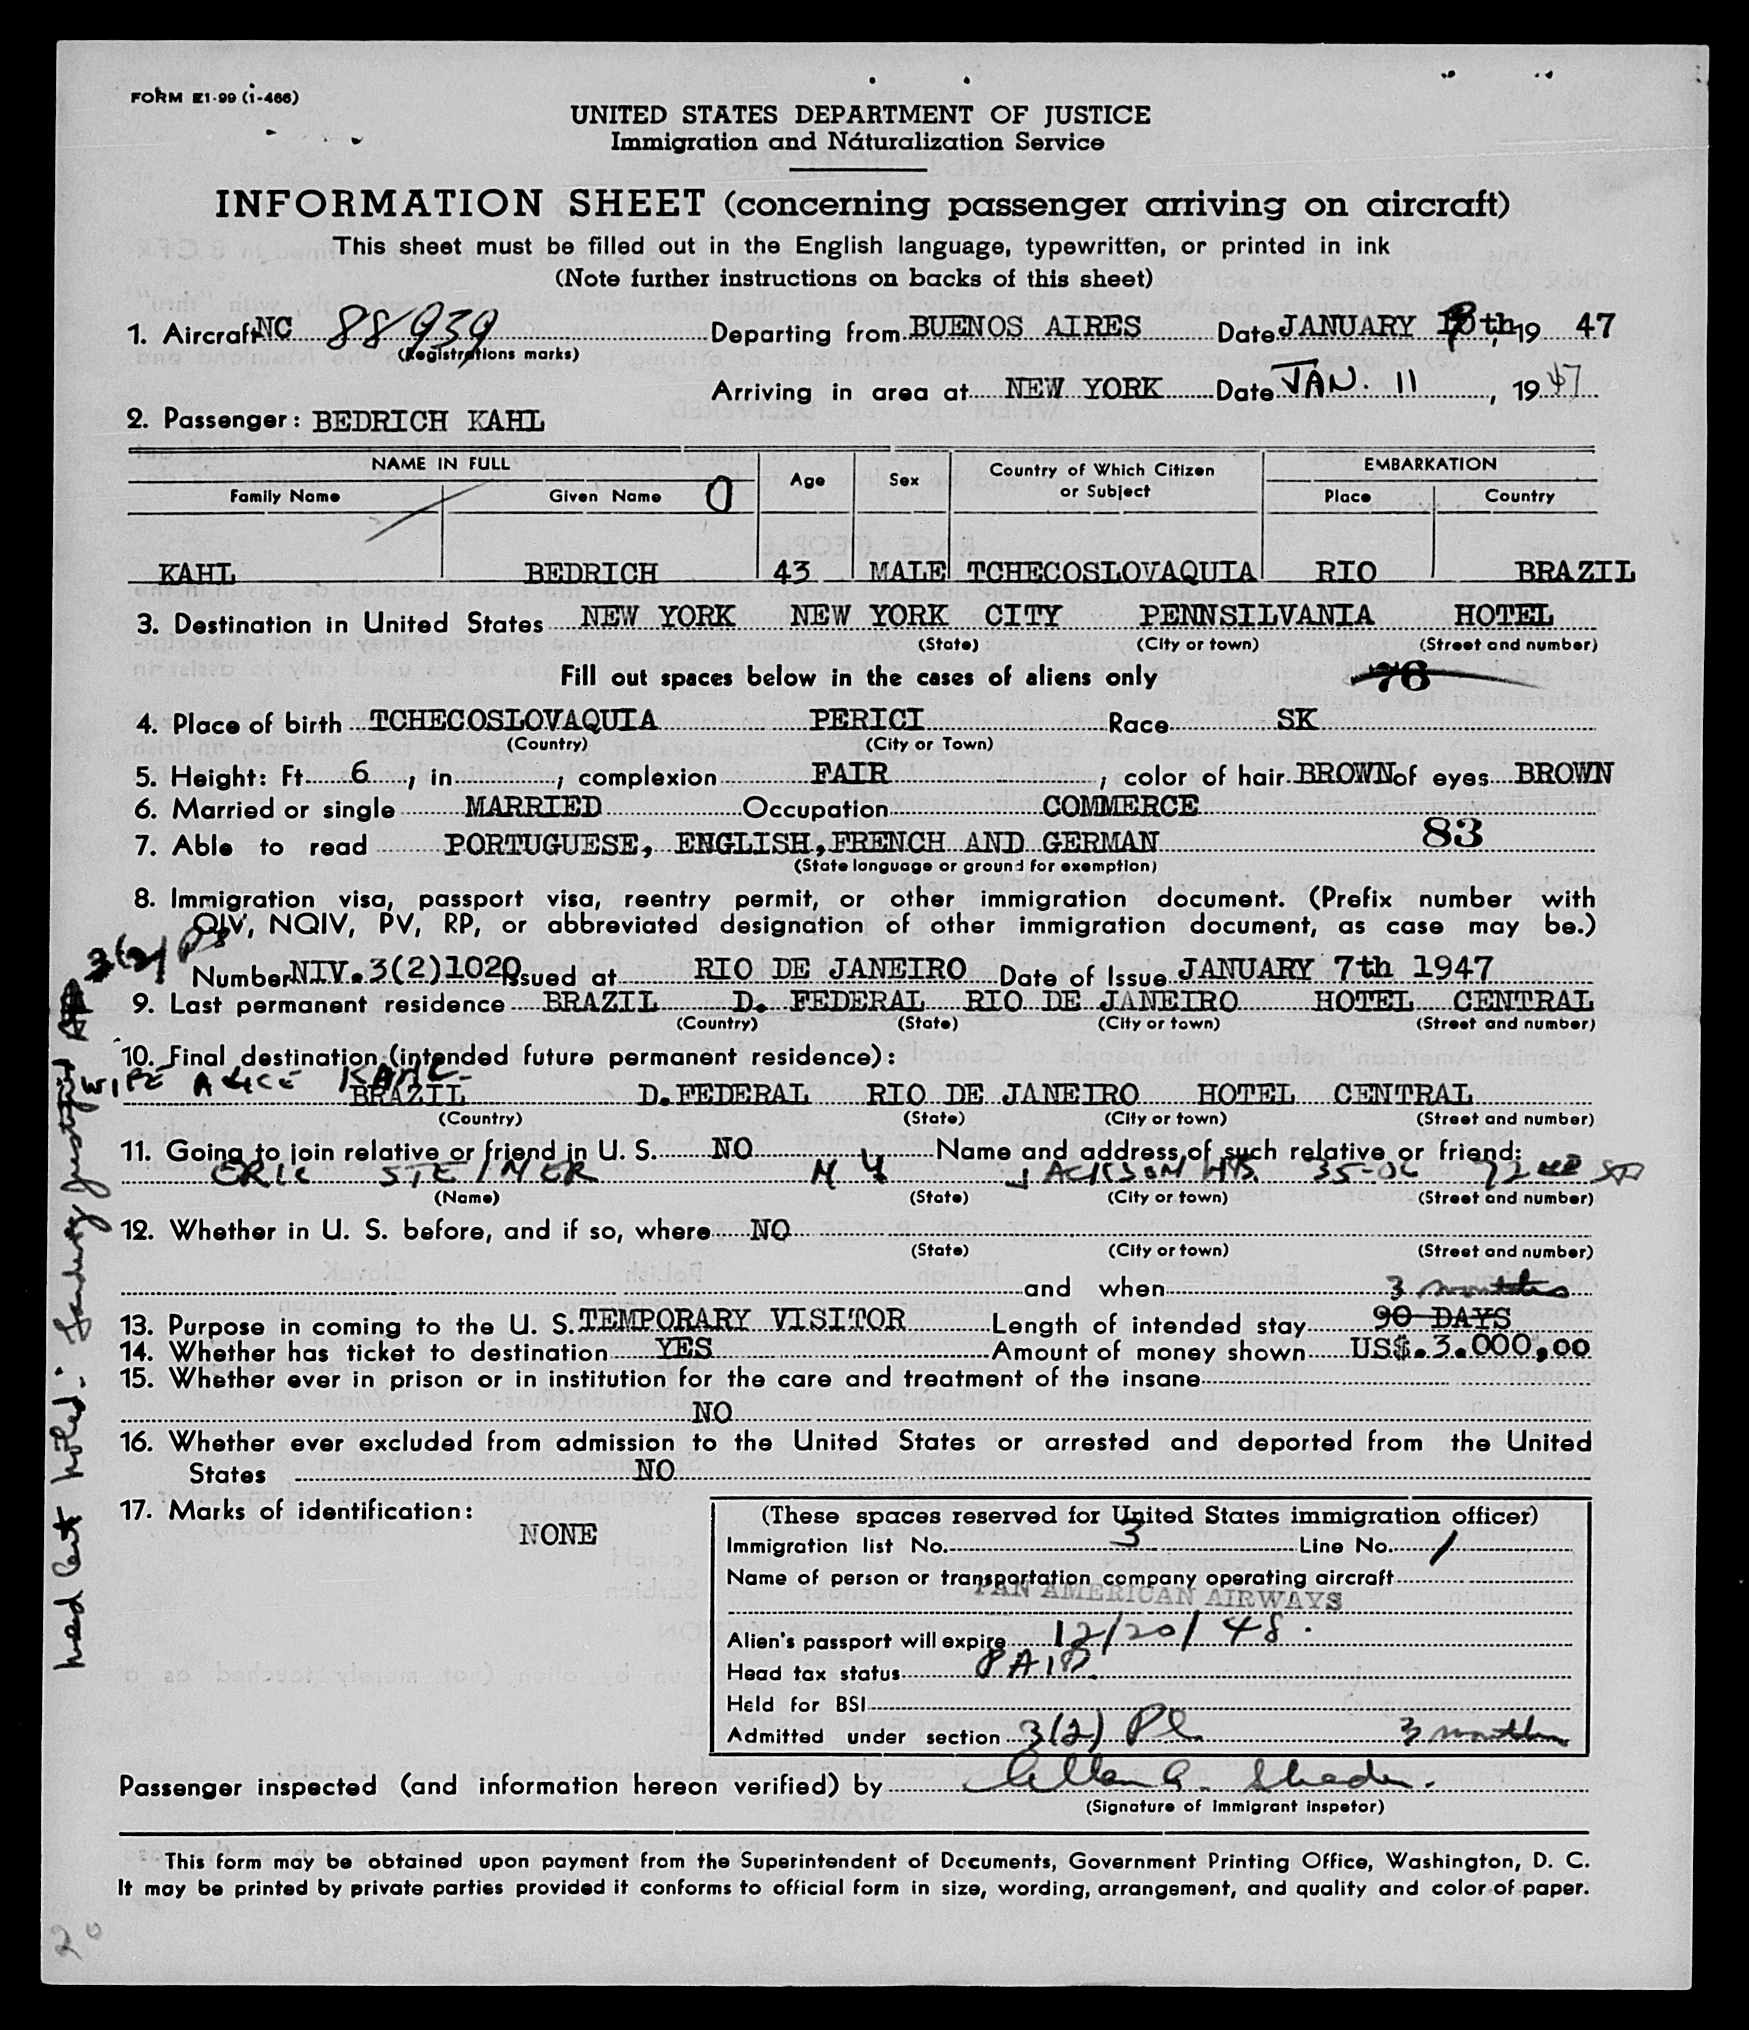 FORM E1-99 (1-466)
UNITED STATES DEPARTMENT OF JUSTICE
Immigration and Naturalization Service
INFORMATION SHEET (concerning passenger arriving on aircraft)
This sheet must be filled out in the English language, typewritten, or printed in ink
(Note further instructions on backs of this sheet)
1. Aircraft NC 88939 Departing from BUENOS AIRES Date JANUARY th, 19 47
(Registrations marks)
Arriving in area at NEW YORK Date JAN. 11, 19 47
2. Passenger: BEDRICH KAHL
NAME IN FULL Age Sex Country of Which Citizen or Subject EMBARKATION
Family Name Given Name 0 Place Country
KAHL BEDRICH 43 MALE TCHECOSLOVAQUIA RIO BRAZIL
3. Destination in United States NEW YORK NEW YORK CITY PENNSILVANIA HOTEL
(State) (City or town) (Street and number)
Fill out spaces below in the cases of aliens only 76
4. Place of birth TCHECOSLOVAQUIA PERICI Race SK
(Country) (City or Town)
5. Height: Ft. 6, in. , complexion FAIR; color of hair BROWN of eyes BROWN
6. Married or single MARRIED Occupation COMMERCE
7. Able to read PORTUGUESE, ENGLISH, FRENCH AND GERMAN 83
(State language or ground for exemption)
8. Immigration visa, passport visa, reentry permit, or other immigration document. (Prefix number with
QIV, NQIV, PV, RP, or abbreviated designation of other immigration document, as case may be.)
3(2)
Number NIV.3(2)1020 Issued at RIO DE JANEIRO Date of Issue JANUARY 7th 1947
9. Last permanent residence BRAZIL D. FEDERAL RIO DE JANEIRO HOTEL CENTRAL
(Country) (State) (City or town) (Street and number)
10. Final destination (intended future permanent residence):
WIFE ALICE KAHL
BRAZIL D.FEDERAL RIO DE JANEIRO HOTEL CENTRAL
(Country) (State) (City or town) (Street and number)
11. Going to join relative or friend in U. S. NO Name and address of such relative or friend:
ERIC STEINER N Y JACKSON HTS. 35-06 72ND ST
(Name) (State) (City or town) (Street and number)
12. Whether in U. S. before, and if so, where NO
(State) (City or town) (Street and number)
and when 3 months
13. Purpose in coming to the U. S. TEMPORARY VISITOR Length of intended stay 90 DAYS
14. Whether has ticket to destination YES Amount of money shown US$.3.000,00
15. Whether ever in prison or in institution for the care and treatment of the insane
NO
16. Whether ever excluded from admission to the United States or arrested and deported from the United
States NO
17. Marks of identification:
NONE
(These spaces reserved for United States immigration officer)
Immigration list No. 3 Line No. 1
Name of person or transportation company operating aircraft
PAN AMERICAN AIRWAYS
Alien's passport will expire 12/20/48.
Head tax status PAID
Held for BSI
Admitted under section 3(2) 3 months
Passenger inspected (and information hereon verified) by
(Signature of immigrant inspetor)
This form may be obtained upon payment from the Superintendent of Documents, Government Printing Office, Washington, D. C.
It may be printed by private parties provided it conforms to official form in size, wording, arrangement, and quality and color of paper.
20